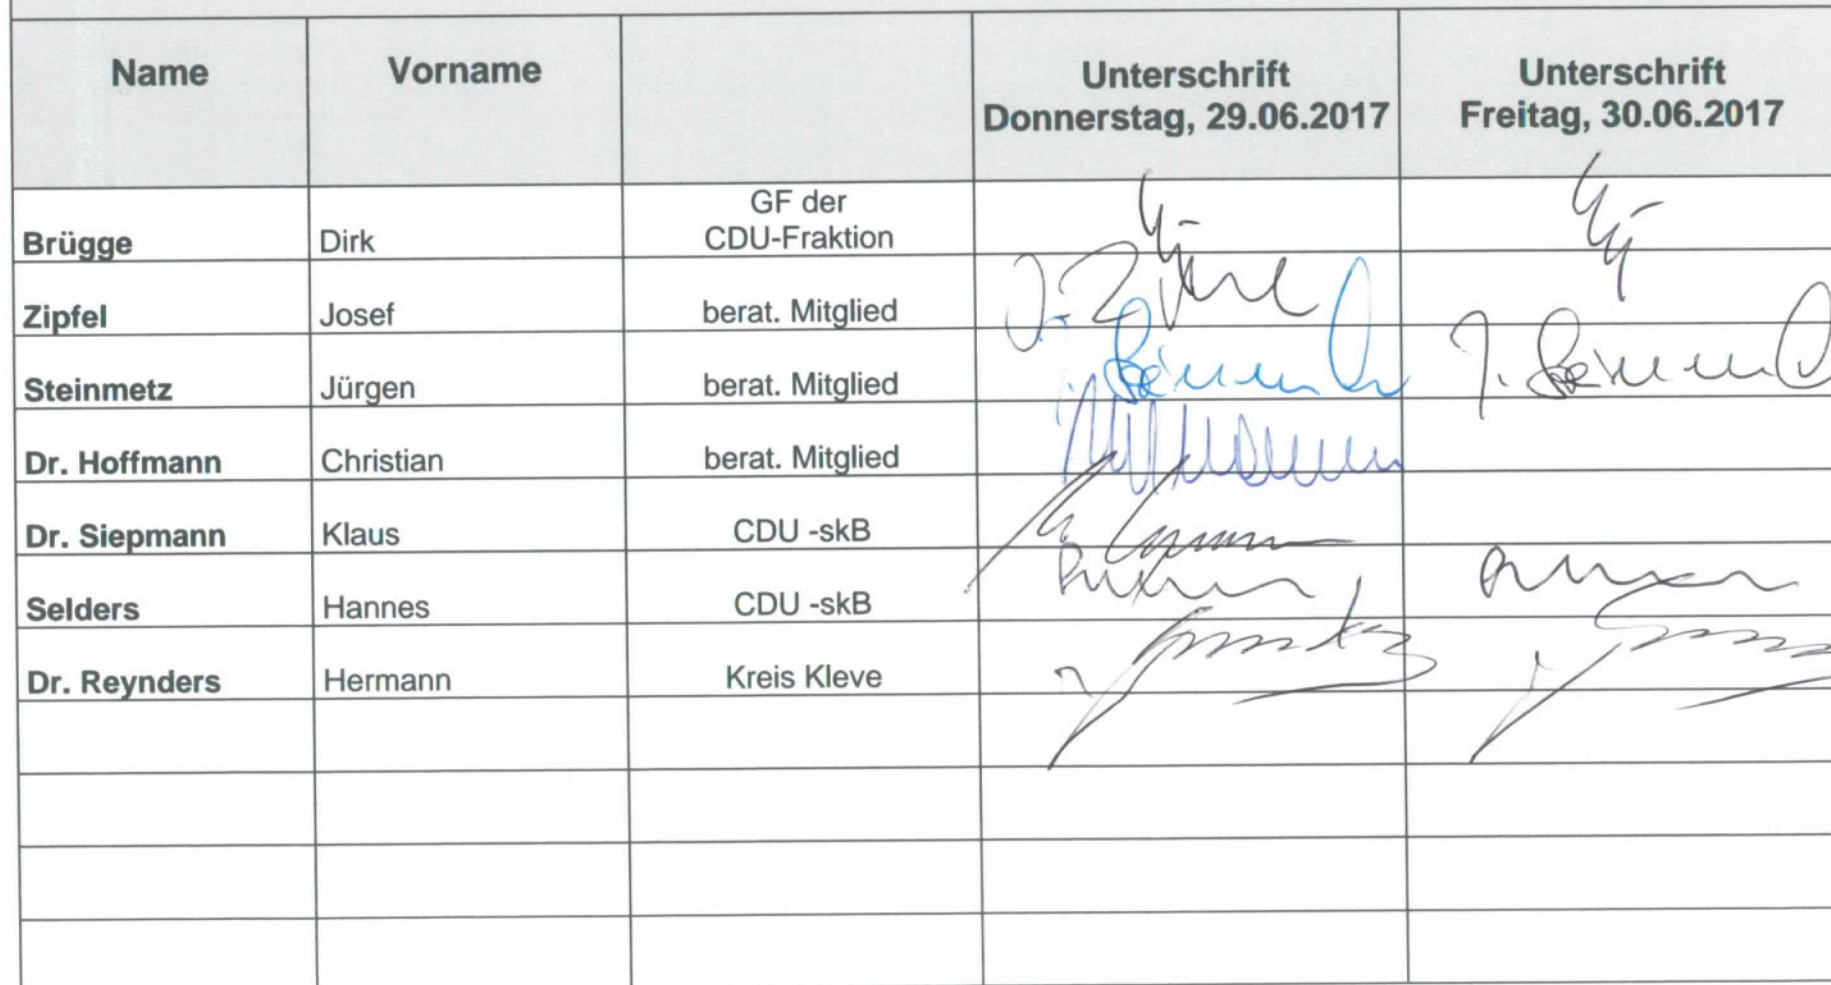 Name Vorname Unterschrift Unterschrift
Donnerstag, 29.06.2017 Freitag, 30.06.2017
GF der
Brügge Dirk CDU-Fraktion
Zipfel Josef berat. Mitglied J. Zipfel
Steinmetz Jürgen berat. Mitglied
Dr. Hoffmann Christian berat. Mitglied
Dr. Siepmann Klaus CDU -skB
Selders Hannes CDU -skB
Dr. Reynders Hermann Kreis Kleve